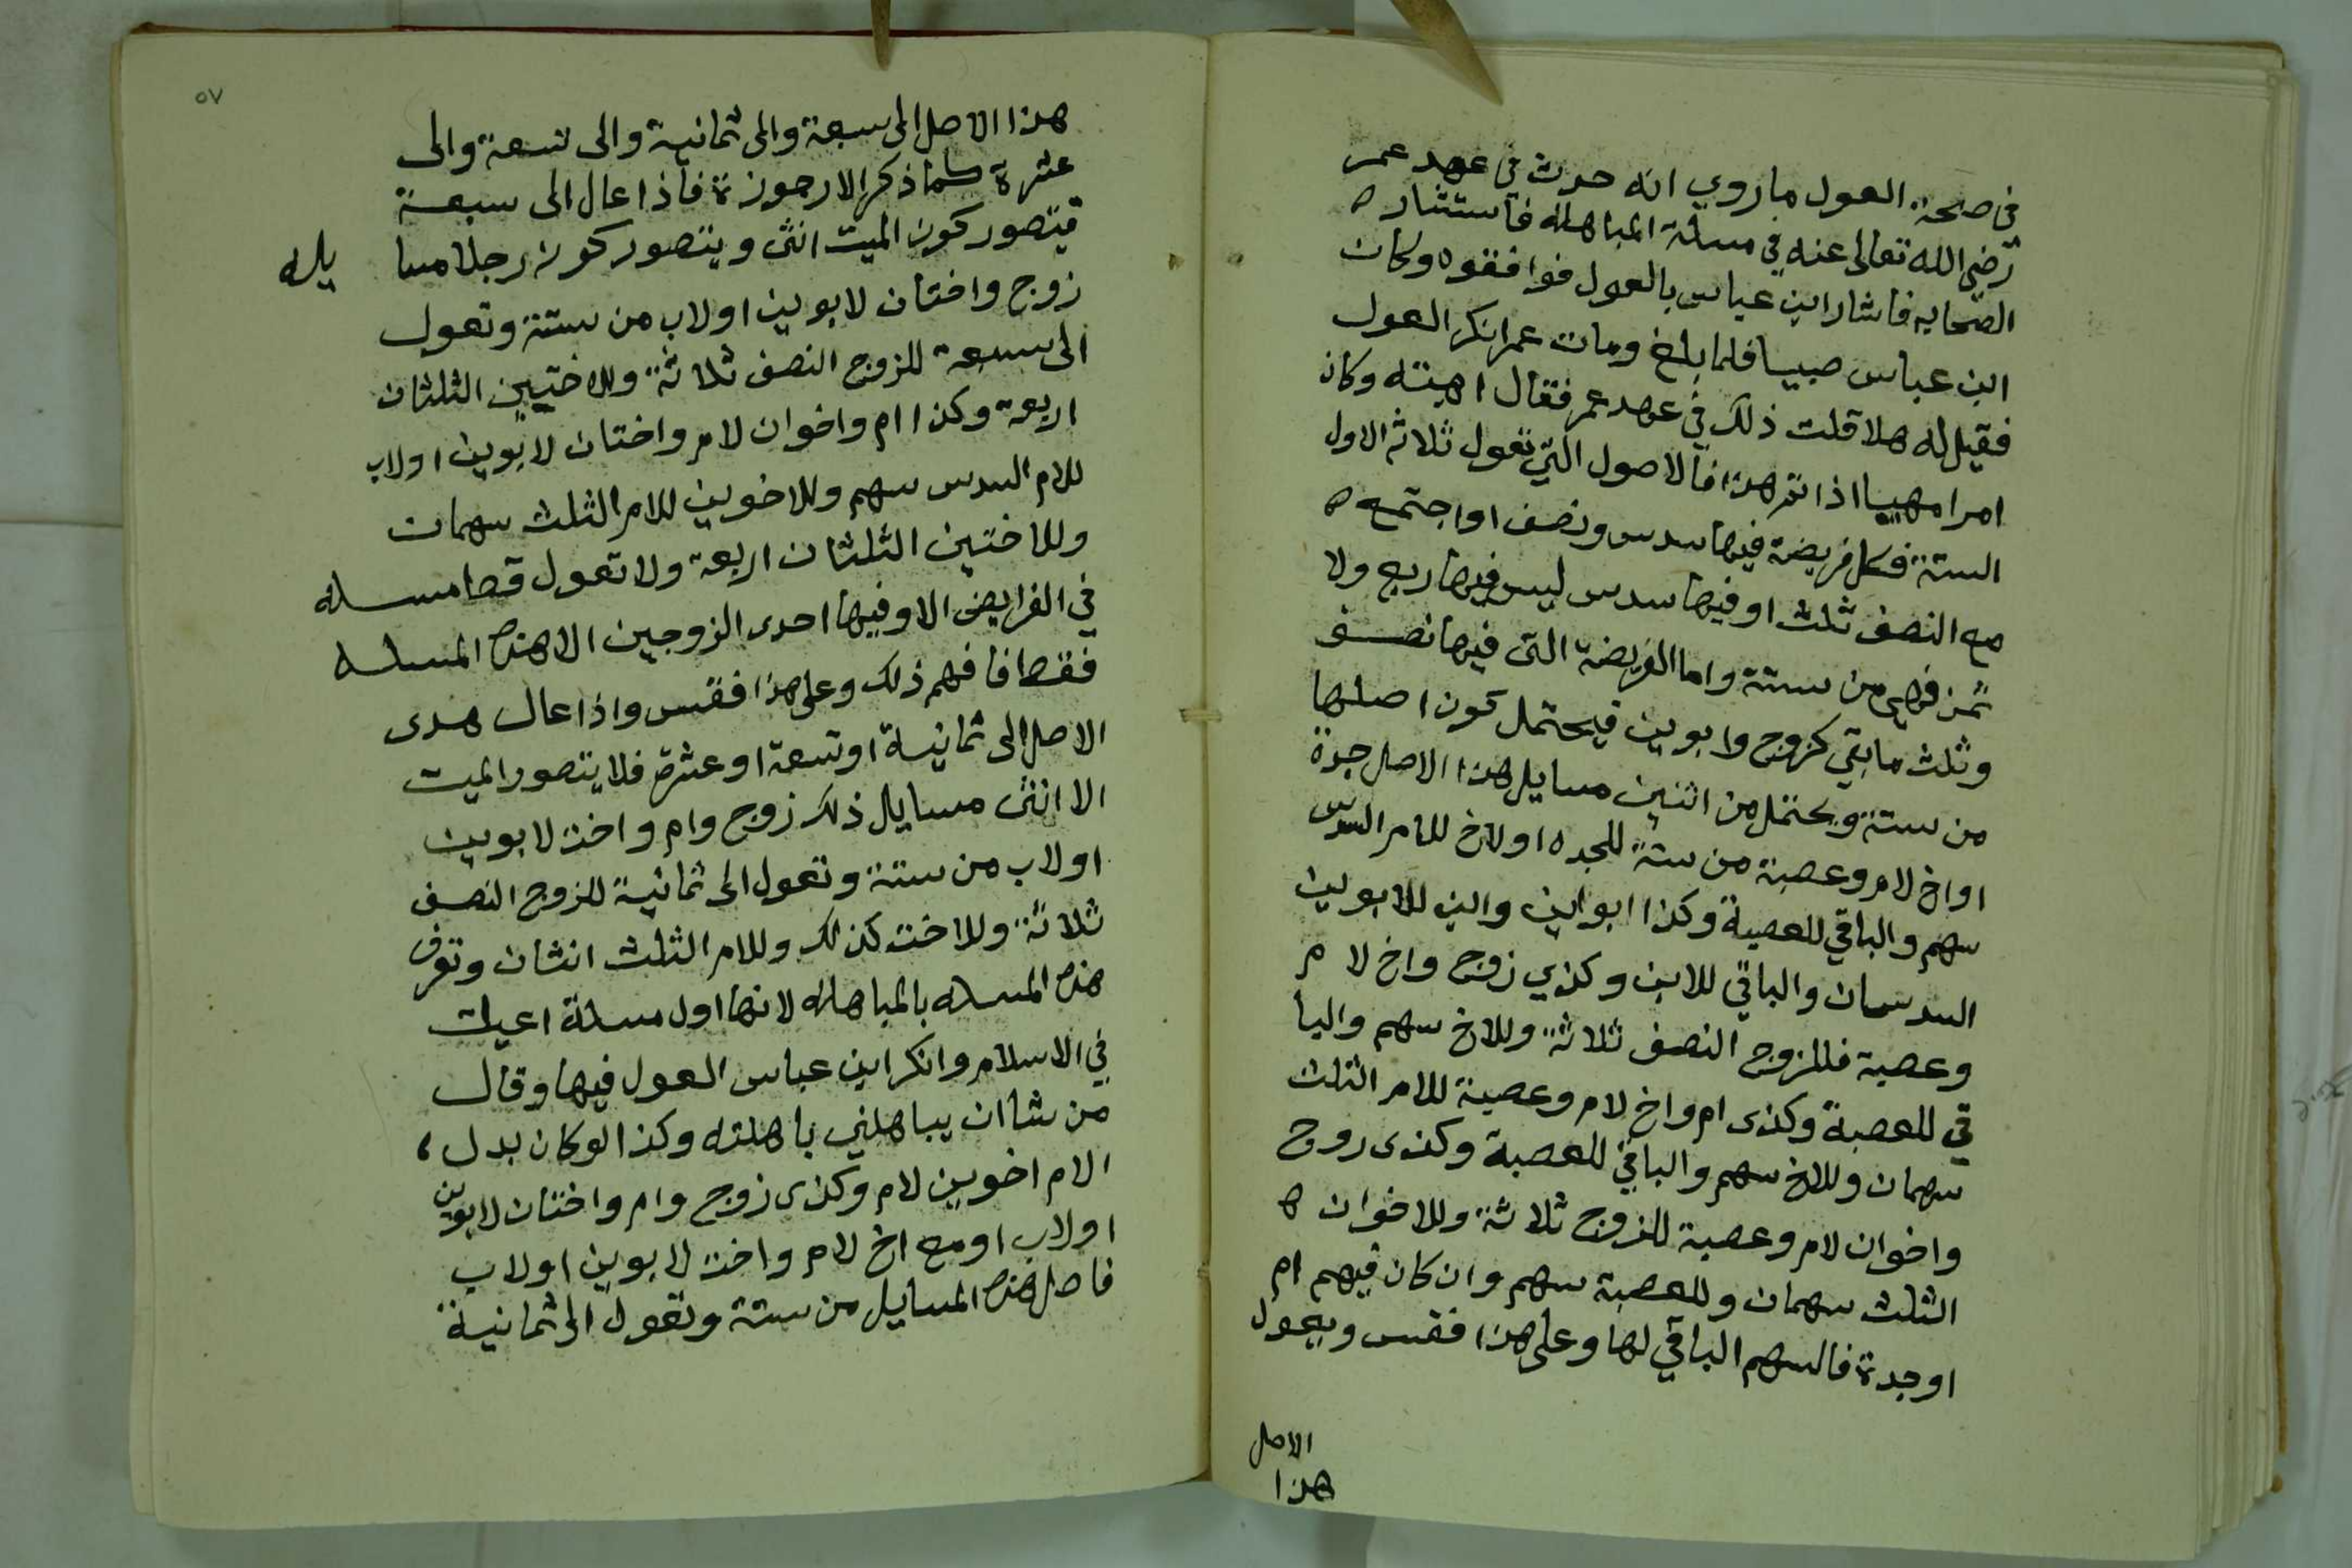 في صحة العول ما روي انه حدث في عهد عمر
رضي الله تعالى عنه في مسلة المباهلة فاستشار ه
الصحابه فاشار ابن عباس بالعول فوافقوه وكان
ابن عباس صبيا فلما بلغ ومات عمر انكر العول
فقيل له هلا قلت ذلك في عهد عمر فقال اهبته وكان
امرا مهيبا اذا تقرر هذا فالاصول التي تعول ثلاثه الاول
الستة فكل فريضة فيها سدس ونصف او اجتمع ه
مع النصف ثلث او فيها سدس ليس فيها ربع ولا
ثمن فهي من ستة واما الفريضة التي فيها نصف
وثلث ما بقي كزوج وابوين فيحتمل كون اصلها
من ستة ويحتمل من اثنين مسايل هذا الاصل جدة
او اخ لام وعصبة من ستة للجده او لاخ للام السدس
سهم والباقي للعصبة وكذا ابوابن وابن للابوين
السدسان والباقي للابن وكذي زوج واخ لا م
وعصبة فللزوج النصف ثلاثة وللاخ سهم والبا
قي للعصبة وكذى ام واخ لام وعصبة للام الثلث
سهمان وللاخ سهم والباقي للعصبة وكذى زوج
واخوان لام وعصبة للزوج ثلاثة وللاخوان ه
الثلث سهمان وللعصبة سهم وان كان فيهم ام
او جدة فالسهم الباقي لها وعلى هذا فقس ويعول
الاصل
هذا
٥٧
هذا الاصل الى سبعة والى ثمانية والى تسعة والى
عشرة كما ذكر الارجوزة فاذا عال الى سبعة
فيتصور كون الميت انثى ويتصور كونه رجلا مسا يله
زوج واختان لابوين او لاب من ستة وتعول
الى سبعة للزوج النصف ثلاثة وللاختين الثلثان
اربعة وكذا ام واخوان لام واختان لابوين او لاب
للام السدس سهم وللاخوين للام الثلث سهمان
وللاختين الثلثان اربعة ولا تعول قط مسله
في الفرايض الا وفيها احدى الزوجين الا هذه المسله
فقط فافهم ذلك وعلى هذا فقس واذا عال هدى
الاصل الى ثمانية او تسعة او عشرة فلا يتصور الميت
الا انثى مسايل ذلك زوج وام واخت لابوين
او لاب من ستة وتعول الى ثمانية للزوج النصف
ثلاثة وللاخت كذلك وللام الثلث اثنان وتعرف
هذه المسله بالمباهله لانها اول مسلة اعيلت
في الاسلام وانكر ابن عباس العول فيها وقال
من شا ان يباهلني باهلته وكذا لو كان بدل
الام اخوين لام وكذى زوج وام واختان لابوين
او لاب او مع اخ لام واخت لابوين او لاب
فاصل هذه المسايل من ستة وتعول الى ثمانية